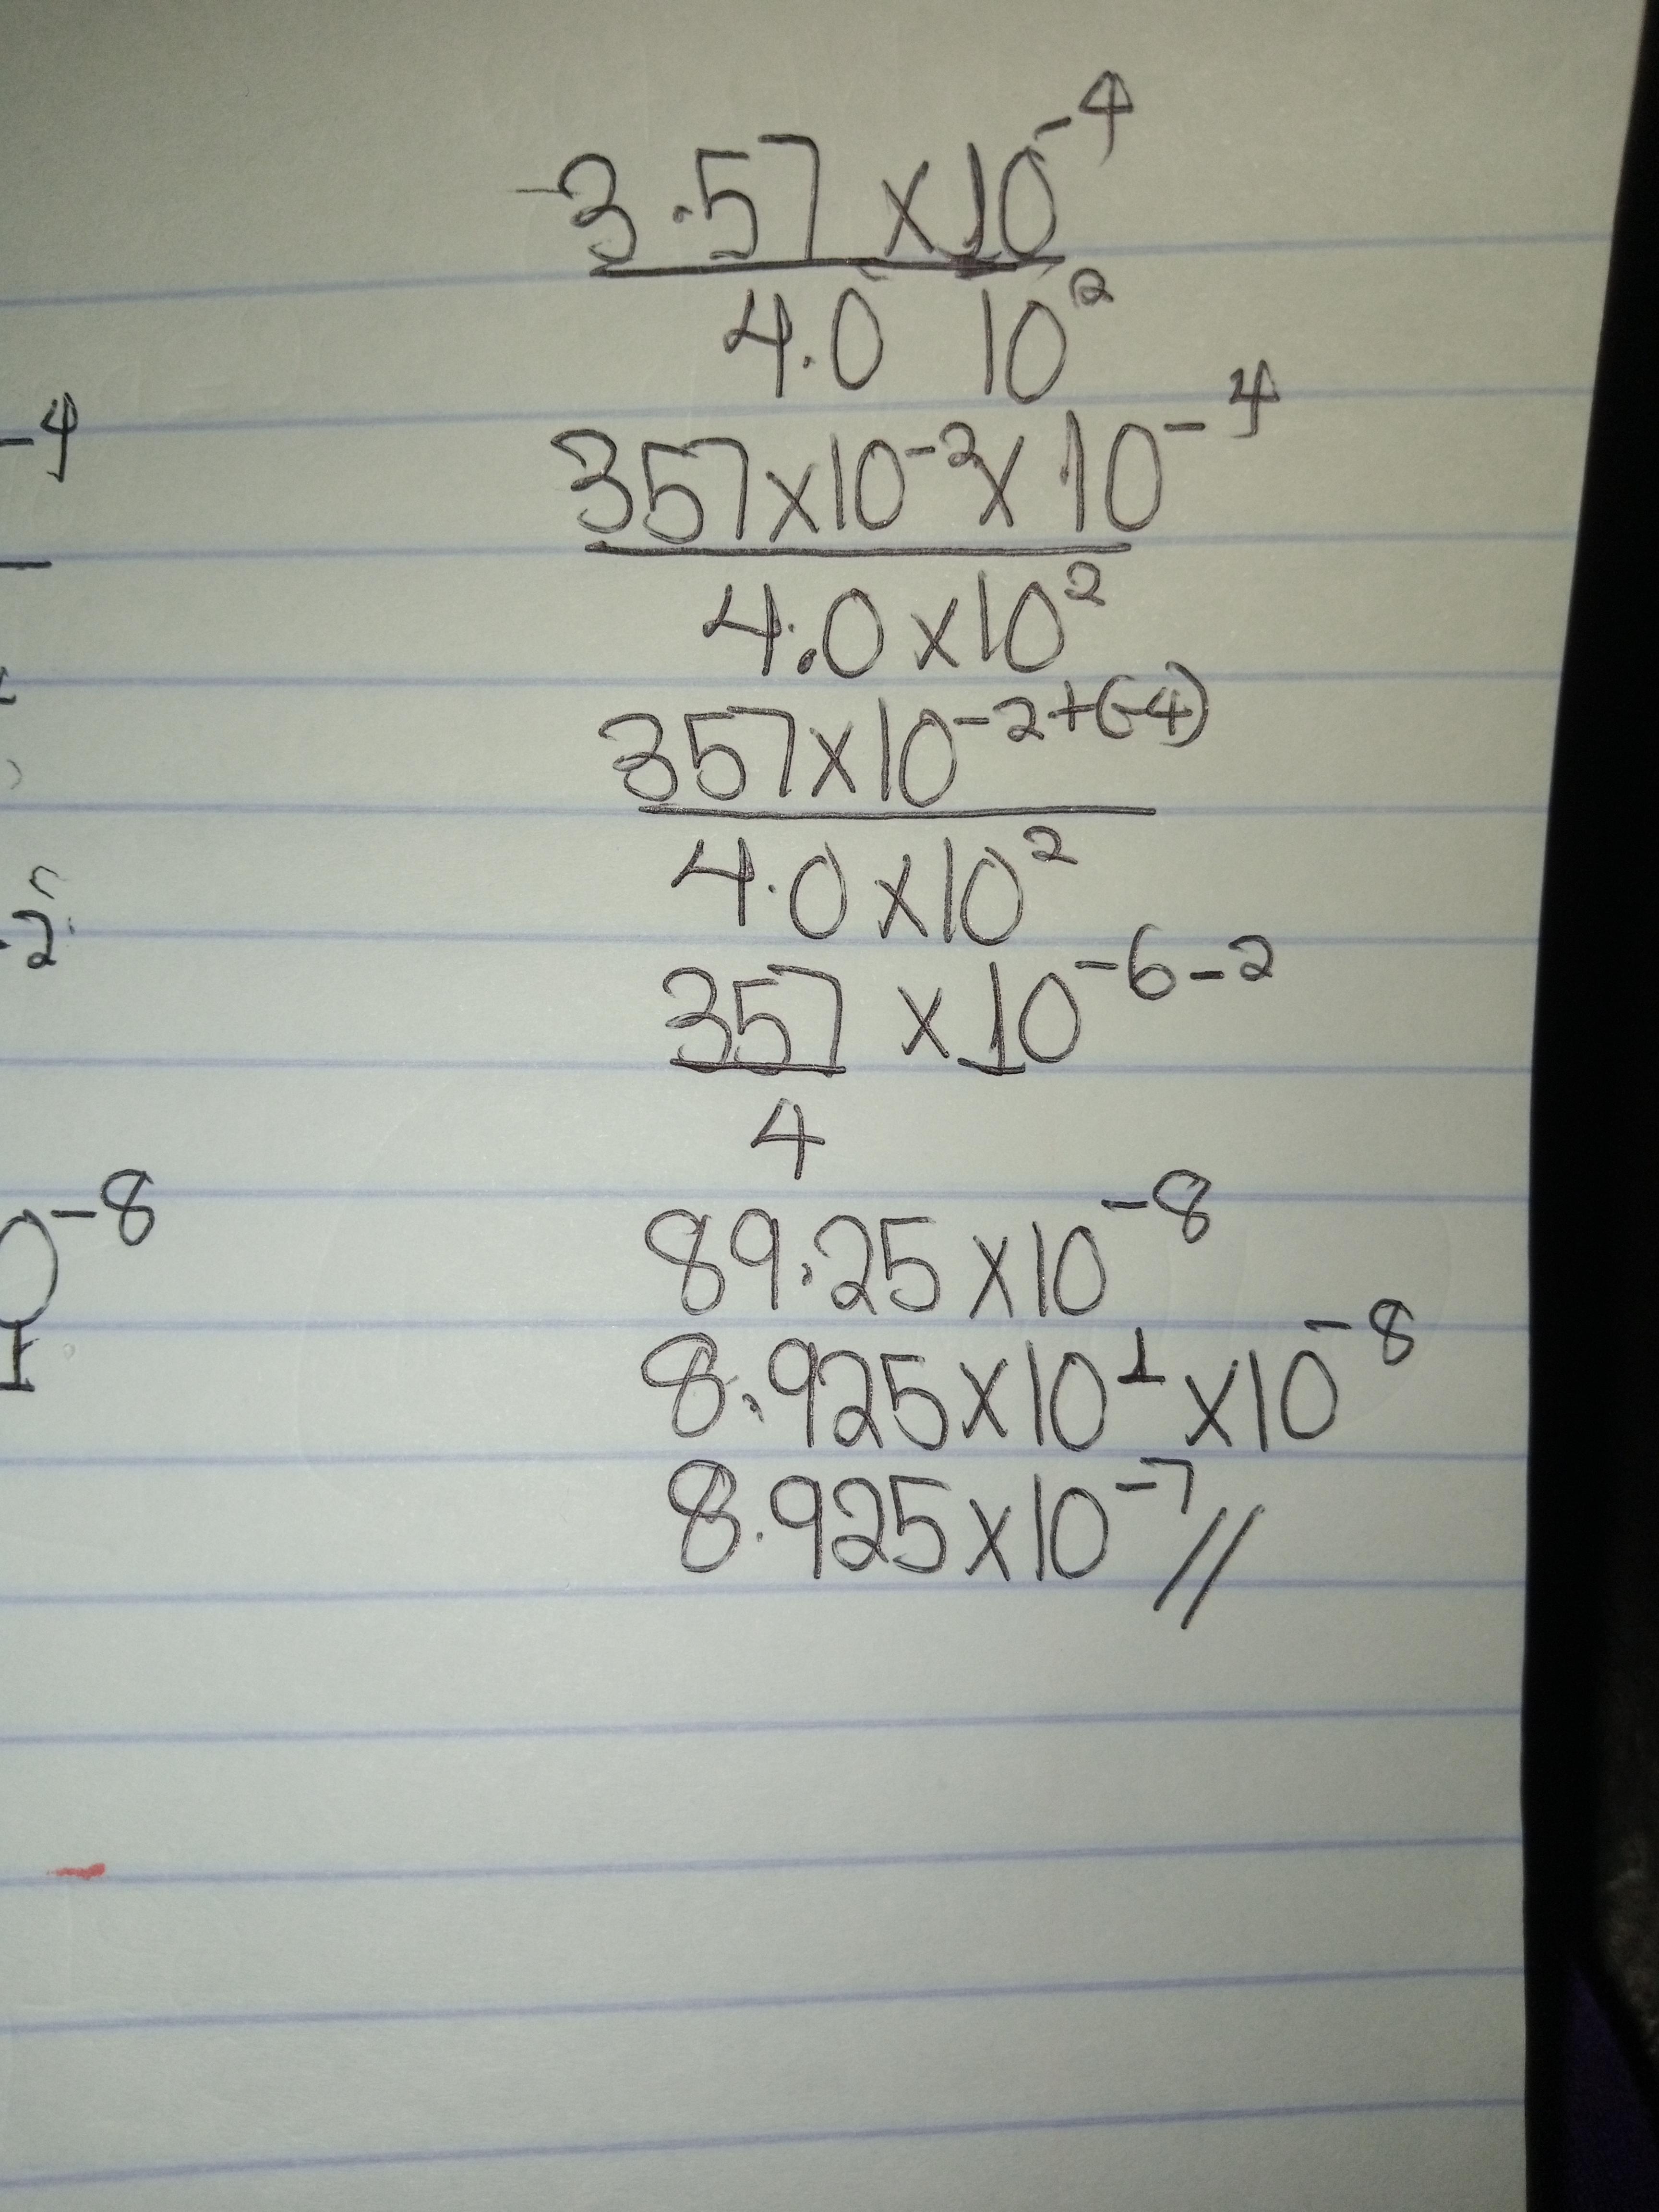 -3.57 x 10^-4
4.0 10^2
357 x 10^-2 x 10^-4
4.0 x 10^2
357 x 10^-2+(-4)
4.0 x 10^2
357 x 10^-6-2
4
89.25 x 10^-8
8.925 x 10^1 x 10^-8
8.925 x 10^-7 //
-4
-2
0^-8